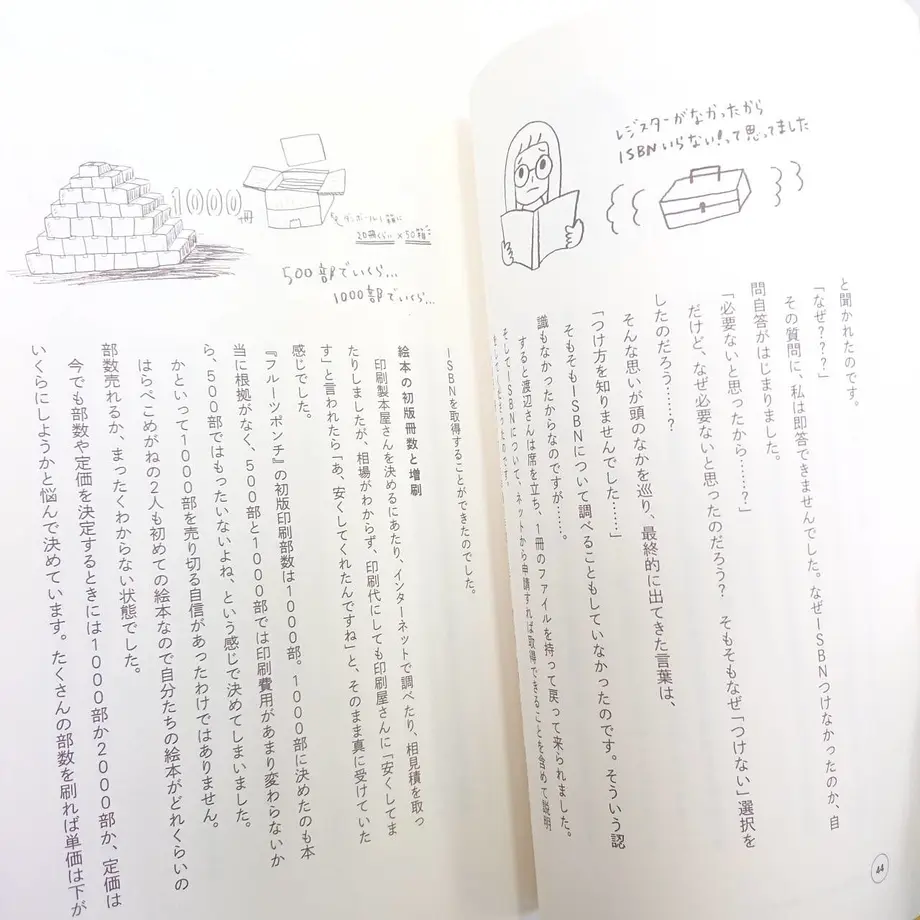 レジスターがなかったから
ISBNいらない!って思ってました
と聞かれたのです。
「なぜ???」
その質問に、私は即答できませんでした。なぜISBNつけなかったのか、自
問自答がはじまりました。
「必要ないと思ったから……?」
だけど、なぜ必要ないと思ったのだろう? そもそもなぜ「つけない」選択を
したのだろう………?
そんな思いが頭のなかを巡り、最終的に出てきた言葉は、
「つけ方を知りませんでした……」
そもそもISBNについて調べることもしていなかったのです。そういう認
識もなかったからなのですが……。
すると渡辺さんは席を立ち、1冊のファイルを持って戻って来られました。
そしてISBNについて、ネットから申請すれば取得できることを含めて説明
44
1000冊
ダンボール1箱に
20冊くらい×50箱
500部でいくら…
1000部でいくら…
ISBNを取得することができたのでした。
絵本の初版冊数と増刷
印刷製本屋さんを決めるにあたり、インターネットで調べたり、相見積を取っ
たりしましたが、相場がわからず、印刷代にしても印刷屋さんに「安くしてま
す」と言われたら「あ、安くしてくれたんですね」と、そのまま真に受けていた
感じでした。
『フルーツポンチ』の初版印刷部数は1000部。1000部に決めたのも本
当に根拠がなく、500部と1000部では印刷費用があまり変わらないか
ら、500部ではもったいないよね、という感じで決めてしまいました。
かといって1000部を売り切る自信があったわけではありません。
はらぺこめがねの2人も初めての絵本なので自分たちの絵本がどれくらいの
部数売れるか、まったくわからない状態でした。
今でも部数や定価を決定するときには1000部か2000部か、定価は
いくらにしようかと悩んで決めています。たくさんの部数を刷れば単価は下が